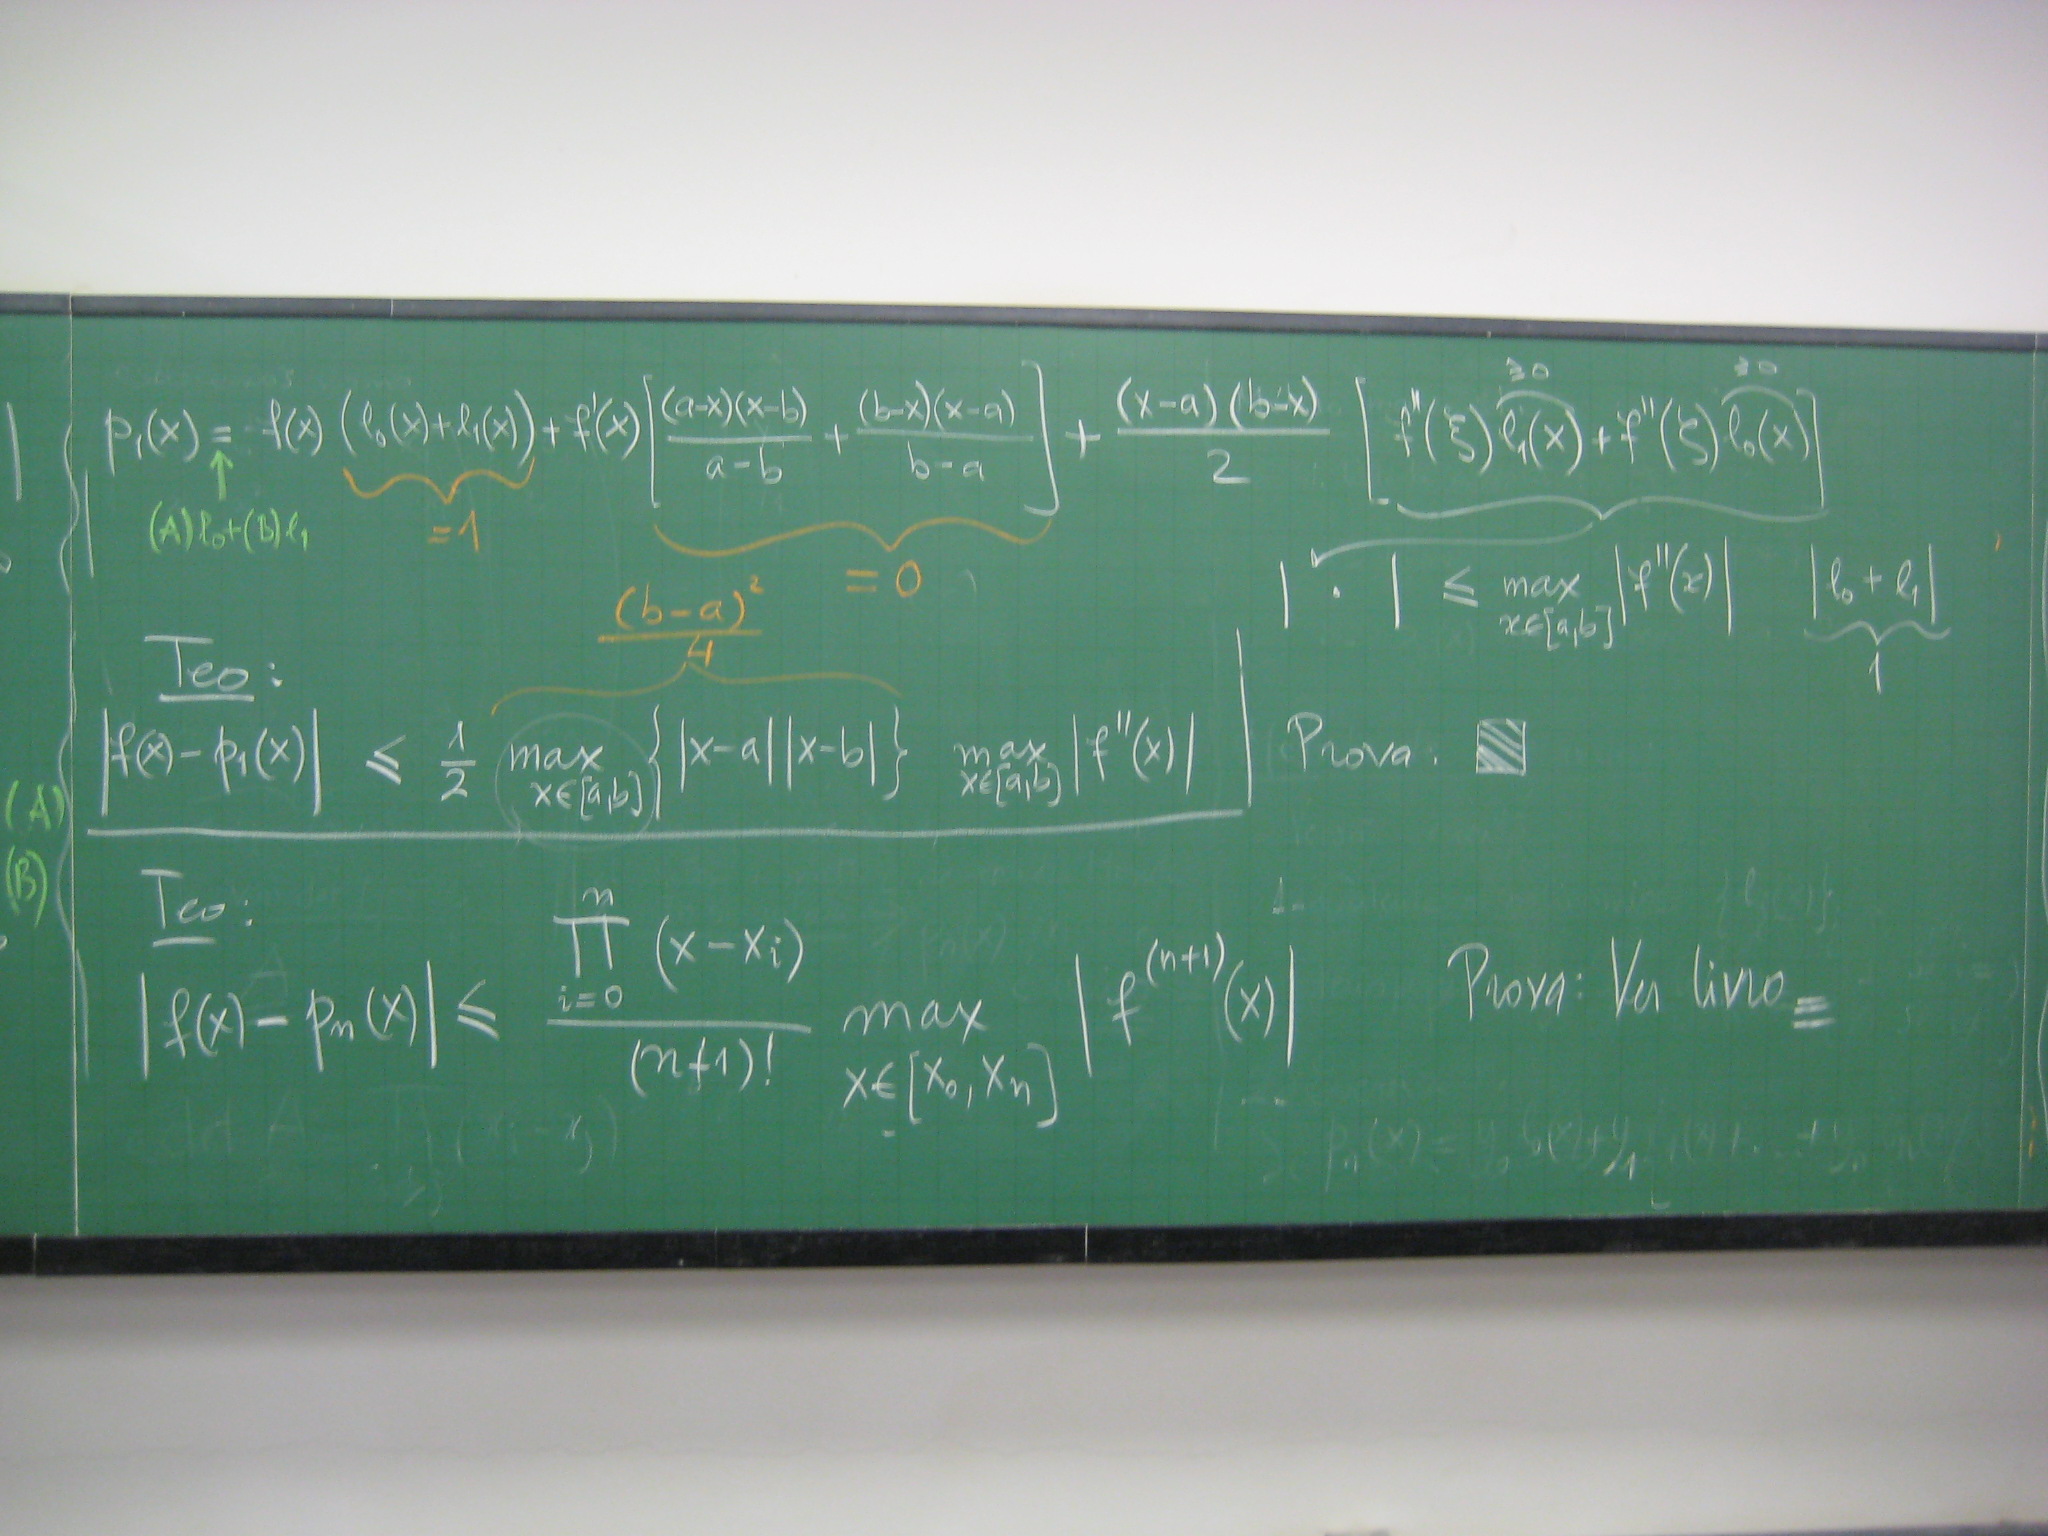 p₁(x) = f(x) (l₀(x)+l₁(x)) + f'(x) [ (a-x)(x-b)/(a-b) + (b-x)(x-a)/(b-a) ] + (x-a)(b-x)/2 [ f''(ξ) l₁(x) + f''(ζ) l₀(x) ]
≥0 ≥0
(A)l₀+(B)l₁
=1
= 0
| · | ≤ max x∈[a,b] |f''(x)| |l₀ + l₁|
1
(b-a)²/4
Teo:
|f(x) - p₁(x)| ≤ 1/2 max x∈[a,b] { |x-a||x-b| } max x∈[a,b] |f''(x)|
Prova:
(A)
(B)
Teo:
|f(x) - pₙ(x)| ≤ ∏ i=0 n (x-xᵢ) / (n+1)! max x∈[x₀,xₙ] |f⁽ⁿ⁺¹⁾(x)|
Prova: Ver livro